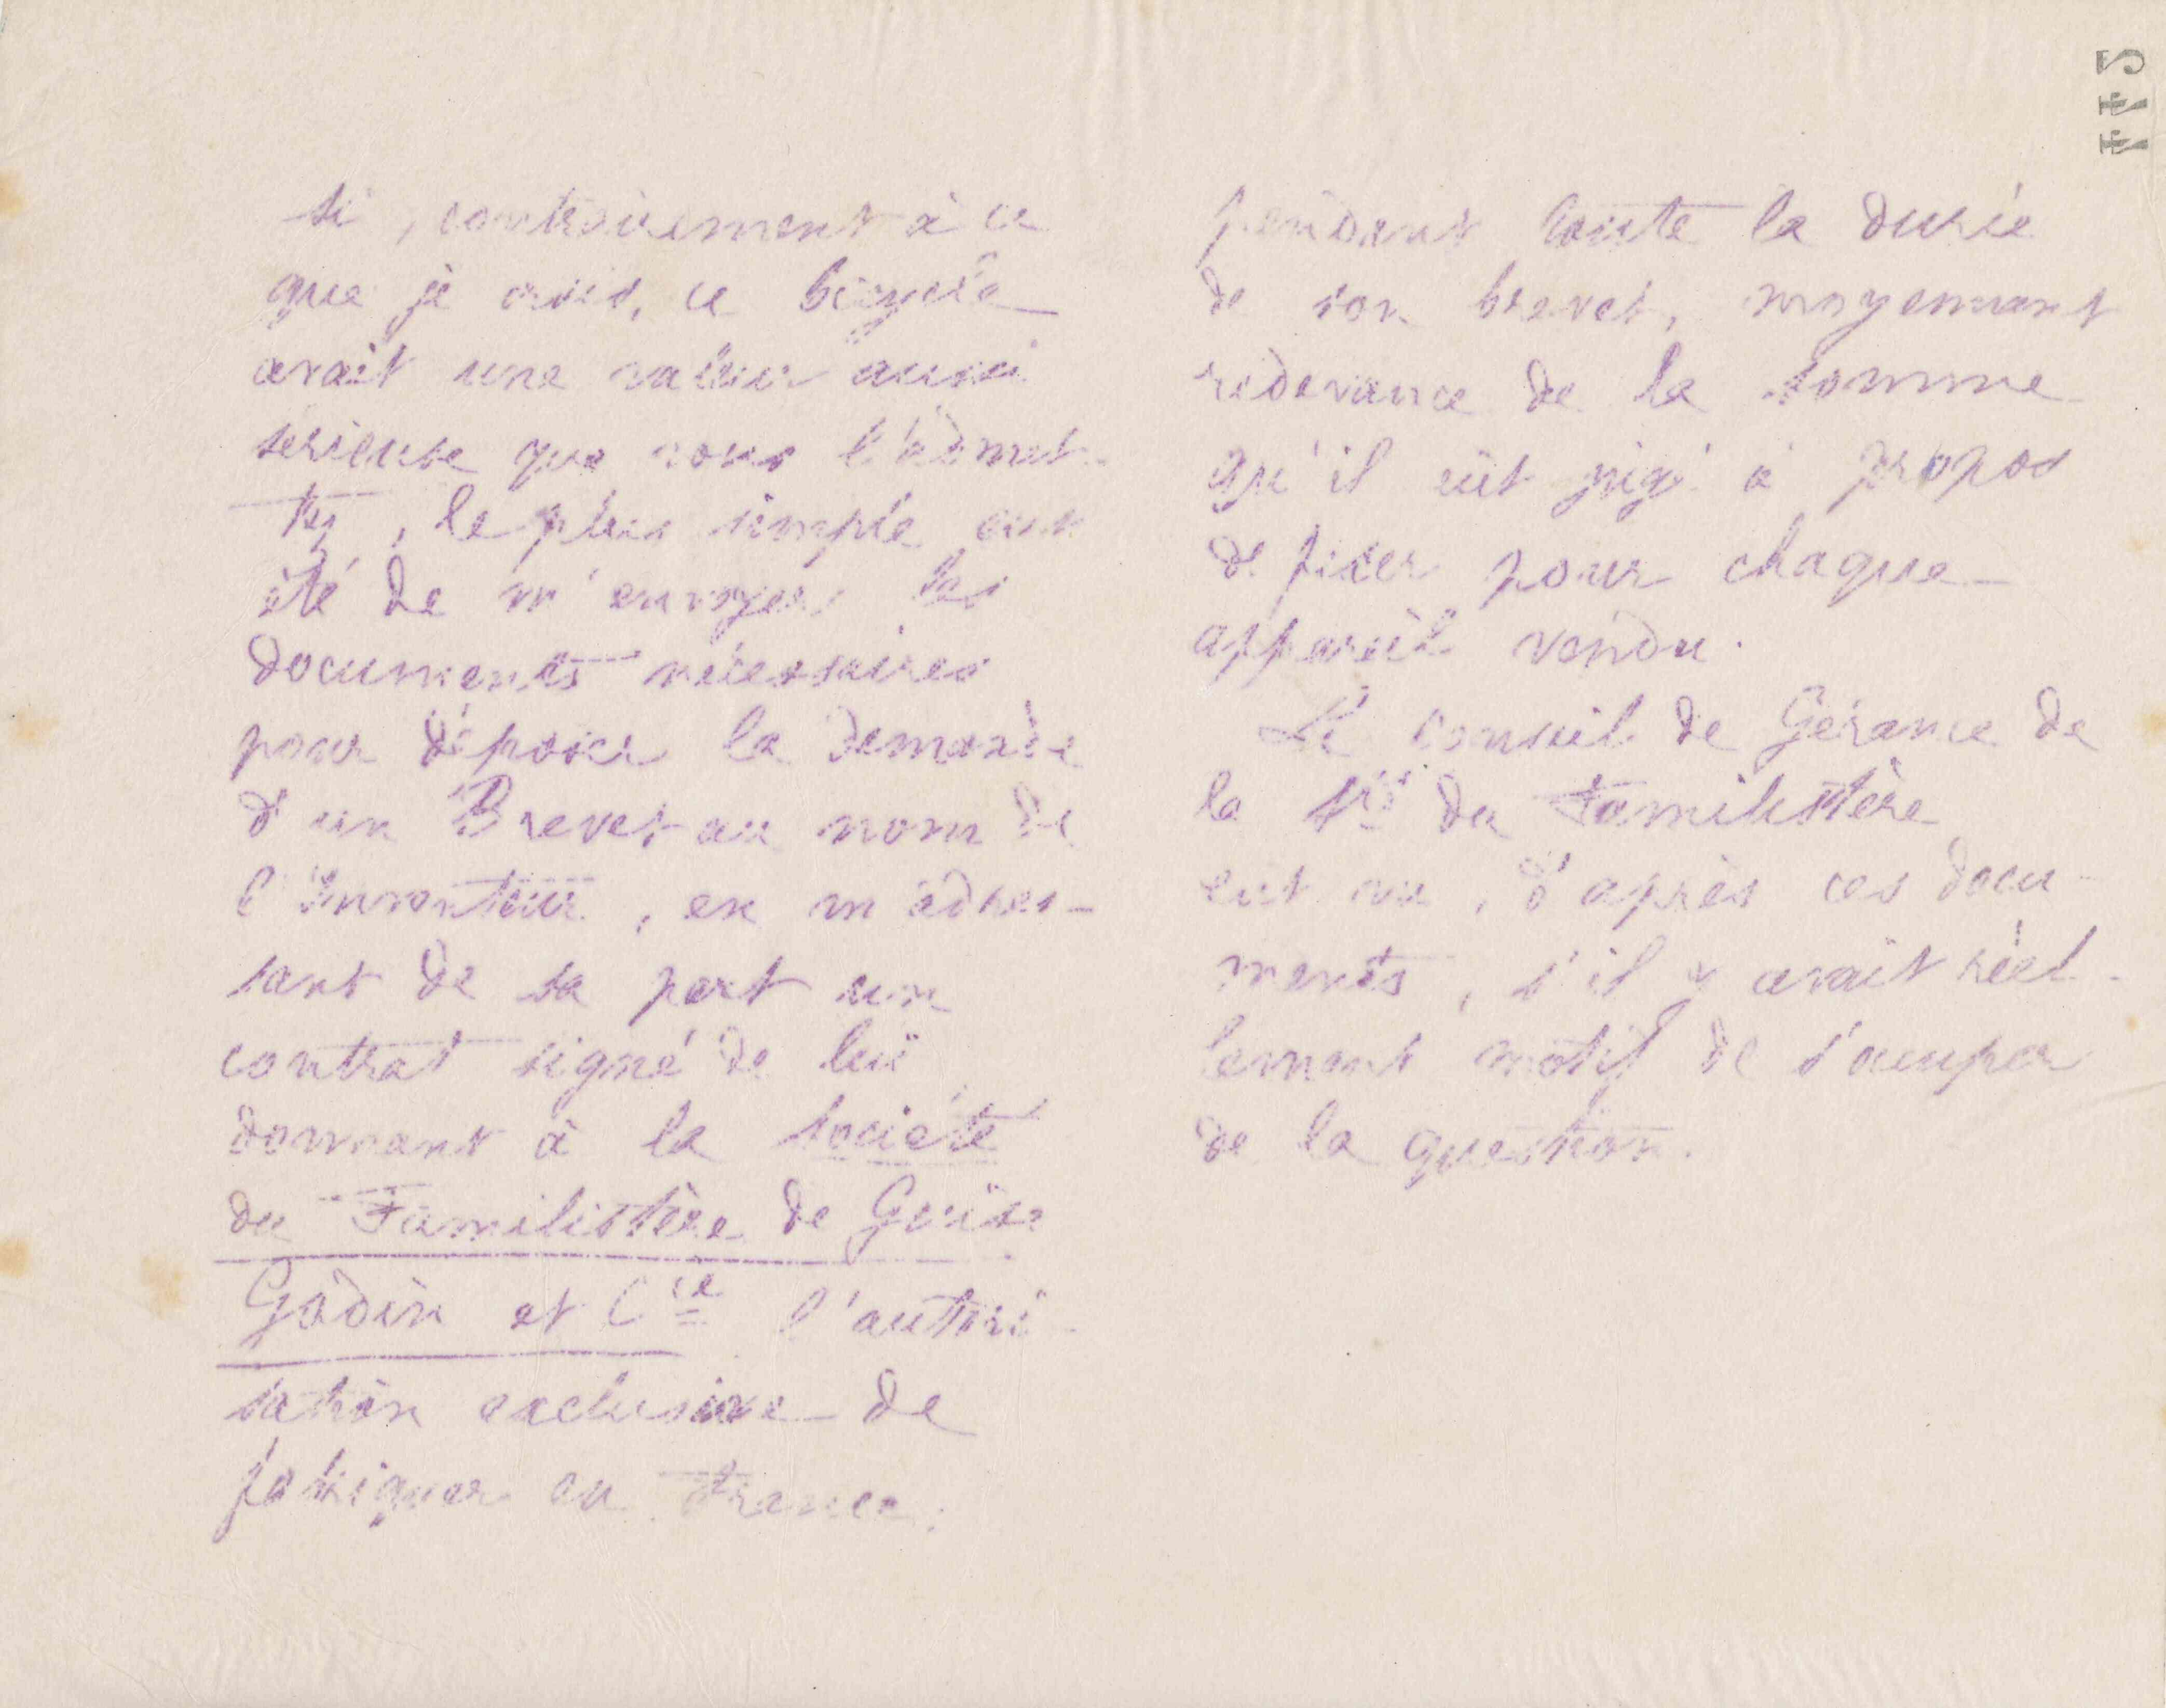 si, contrairement à ce
que je crois, ce bicycle
avait une valeur aussi
sérieuse que vous l'admet-
tez, le plus simple eut
été de m'envoyer les
documents nécessaires
pour déposer la demande
d'un Brevet au nom de
l'Inventeur, en m'adres-
sant de sa part un
contrat signé de lui
donnant à la Société
du Familistère de Guise
Godin et Cie l'autori-
sation exclusive de
fabriquer en France,
pendant toute la durée
de son brevet, moyennant
redevance de la somme
qu'il eût jugé à propos
de fixer pour chaque
appareil vendu.
Le Conseil de Gérance de
la Sté du Familistère
eut vu, d'après ces docu-
ments, s'il y avait réel-
lement motif de s'occuper
de la question.